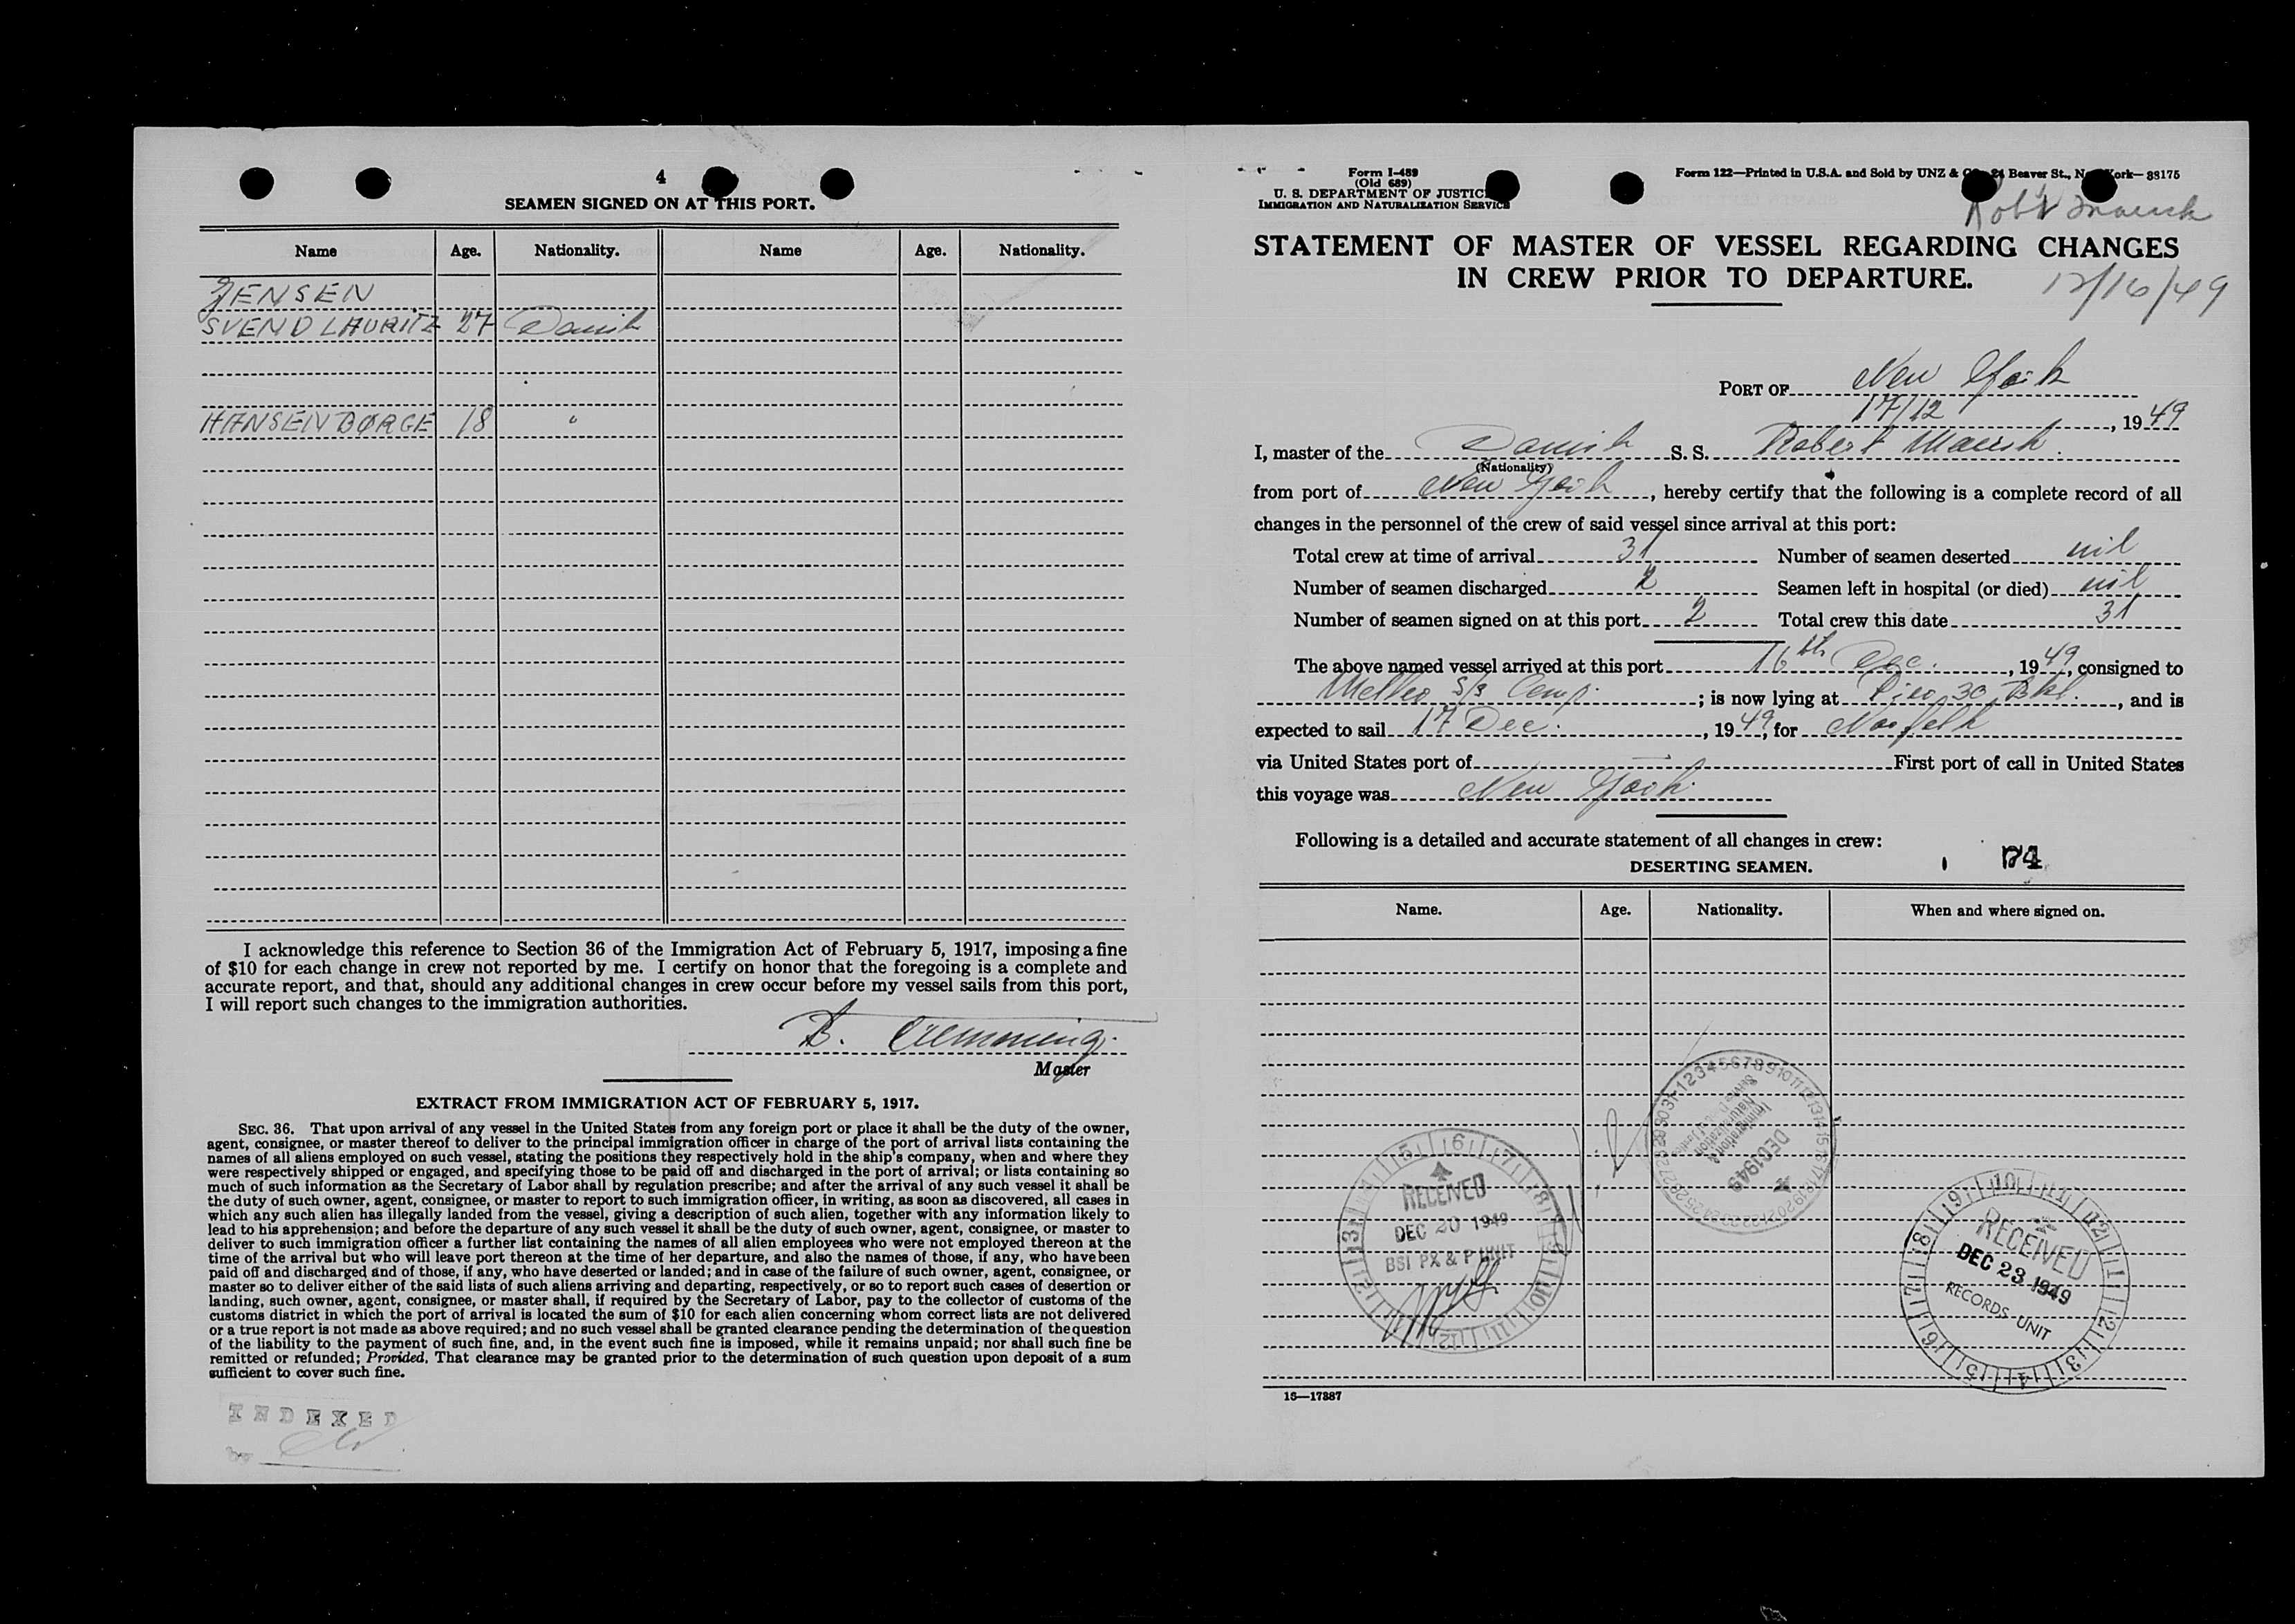 4
SEAMEN SIGNED ON AT THIS PORT.
Name Age. Nationality. Name Age. Nationality.
JENSEN
SVEND LAURITZ 27 Danish
HANSEN BØRGE 18 "
I acknowledge this reference to Section 36 of the Immigration Act of February 5, 1917, imposing a fine
of $10 for each change in crew not reported by me. I certify on honor that the foregoing is a complete and
accurate report, and that, should any additional changes in crew occur before my vessel sails from this port,
I will report such changes to the immigration authorities.
B.
Master
EXTRACT FROM IMMIGRATION ACT OF FEBRUARY 5, 1917.
SEC. 36. That upon arrival of any vessel in the United States from any foreign port or place it shall be the duty of the owner,
agent, consignee, or master thereof to deliver to the principal immigration officer in charge of the port of arrival lists containing the
names of all aliens employed on such vessel, stating the positions they respectively hold in the ship's company, when and where they
were respectively shipped or engaged, and specifying those to be paid off and discharged in the port of arrival; or lists containing so
much of such information as the Secretary of Labor shall by regulation prescribe; and after the arrival of any such vessel it shall be
the duty of such owner, agent, consignee, or master to report to such immigration officer, in writing, as soon as discovered, all cases in
which any such alien has illegally landed from the vessel, giving a description of such alien, together with any information likely to
lead to his apprehension; and before the departure of any such vessel it shall be the duty of such owner, agent, consignee, or master to
deliver to such immigration officer a further list containing the names of all alien employees who were not employed thereon at the
time of the arrival but who will leave port thereon at the time of her departure, and also the names of those, if any, who have been
paid off and discharged and of those, if any, who have deserted or landed; and in case of the failure of such owner, agent, consignee, or
master so to deliver either of the said lists of such aliens arriving and departing, respectively, or so to report such cases of desertion or
landing, such owner, agent, consignee, or master shall, if required by the Secretary of Labor, pay to the collector of customs of the
customs district in which the port of arrival is located the sum of $10 for each alien concerning whom correct lists are not delivered
or a true report is not made as above required; and no such vessel shall be granted clearance pending the determination of the question
of the liability to the payment of such fine, and, in the event such fine is imposed, while it remains unpaid; nor shall such fine be
remitted or refunded; Provided, That clearance may be granted prior to the determination of such question upon deposit of a sum
sufficient to cover such fine.
INDEXED
by
Form I-489
(Old 689)
U. S. DEPARTMENT OF JUSTICE
IMMIGRATION AND NATURALIZATION SERVICE
Form 122—Printed in U.S.A. and Sold by UNZ & Beaver St., 38175
Robt Maersk
STATEMENT OF MASTER OF VESSEL REGARDING CHANGES
IN CREW PRIOR TO DEPARTURE.
12/16/49
PORT OF New York
17/12, 1949
I, master of the Danish S. S. Robert Maersk
(Nationality)
from port of New York, hereby certify that the following is a complete record of all
changes in the personnel of the crew of said vessel since arrival at this port:
Total crew at time of arrival 31 Number of seamen deserted nil
Number of seamen discharged 2 Seamen left in hospital (or died) nil
Number of seamen signed on at this port 2 Total crew this date 31
The above named vessel arrived at this port 16th Dec., 1949, consigned to
S/S ; is now lying at Pier 30 Bkl., and is
expected to sail 17 Dec., 1949, for Norfolk
via United States port of — First port of call in United States
this voyage was New York.
Following is a detailed and accurate statement of all changes in crew:
DESERTING SEAMEN.
Name. Age. Nationality. When and where signed on.
Immigration &
Naturalization
DEC 1949
RECEIVED
DEC 20 1949
BSI PX & P UNIT
RECEIVED
DEC 23 1949
RECORDS UNIT
16—17887